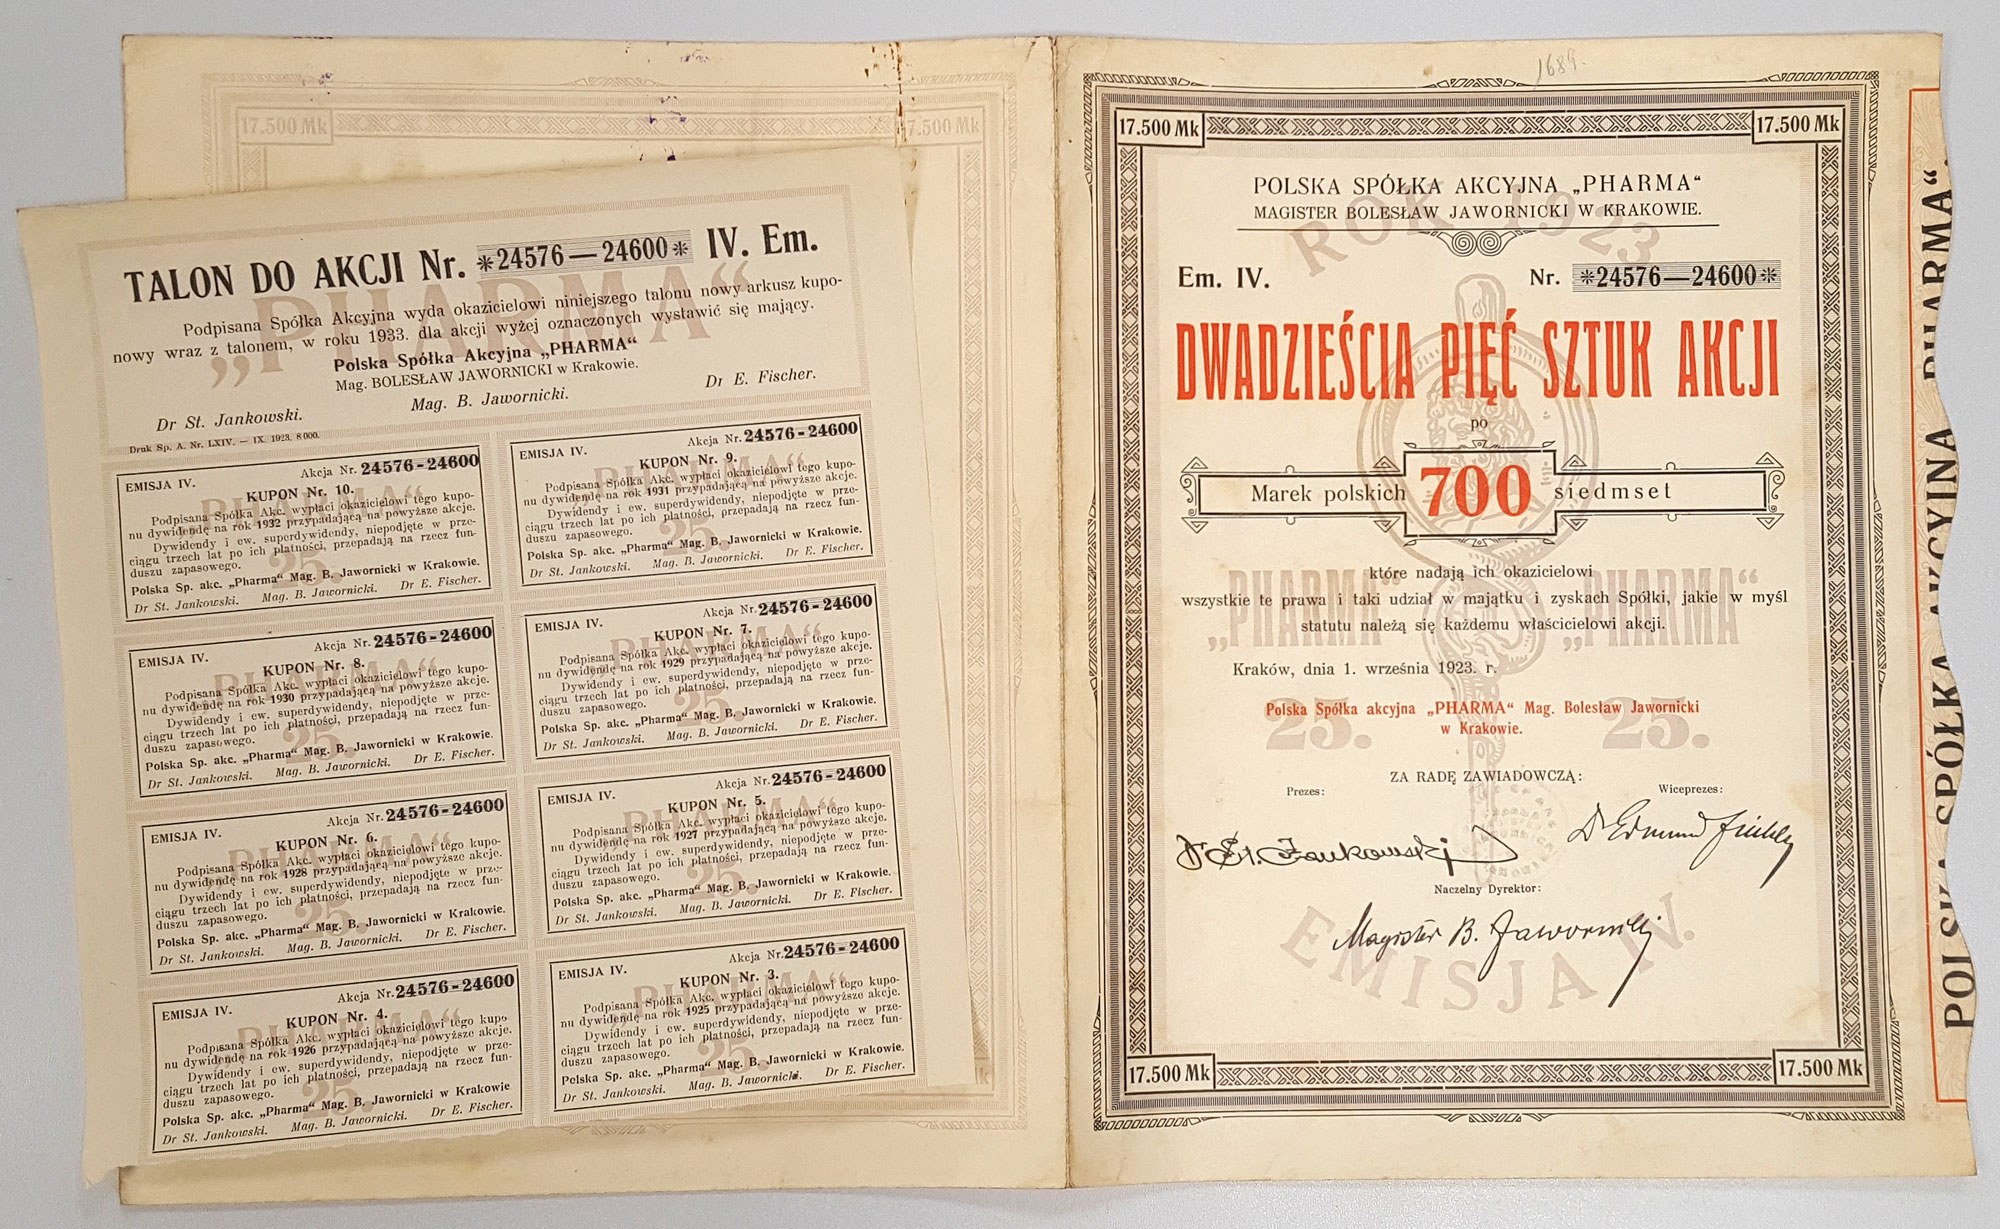 17.500 Mk
17.500 Mk
TALON DO AKCJI Nr. *24576—24600* IV. Em.
„PHARMA“
Podpisana Spółka Akcyjna wyda okazicielowi niniejszego talonu nowy arkusz kupo-
nowy wraz z talonem, w roku 1933. dla akcji wyżej oznaczonych wystawić się mający.
Polska Spółka Akcyjna „PHARMA“
Mag. BOLESŁAW JAWORNICKI w Krakowie.
Dr St. Jankowski. Mag. B. Jawornicki. Dr E. Fischer.
Druk Sp. A. Nr. LXIV. — IX. 1923. 8000.
EMISJA IV. Akcja Nr. 24576-24600
KUPON Nr. 10.
Podpisana Spółka Akc. wypłaci okazicielowi tego kupo-
nu dywidendę na rok 1932 przypadającą na powyższe akcje.
Dywidendy i ew. superdywidendy, niepodjęte w prze-
ciągu trzech lat po ich płatności, przepadają na rzecz fun-
duszu zapasowego.
25.
Polska Sp. akc. „Pharma“ Mag. B. Jawornicki w Krakowie.
Dr St. Jankowski. Mag. B. Jawornicki. Dr E. Fischer.
EMISJA IV. Akcja Nr. 24576-24600
KUPON Nr. 9.
Podpisana Spółka Akc. wypłaci okazicielowi tego kupo-
nu dywidendę na rok 1931 przypadającą na powyższe akcje.
Dywidendy i ew. superdywidendy, niepodjęte w prze-
ciągu trzech lat po ich płatności, przepadają na rzecz fun-
duszu zapasowego.
25.
Polska Sp. akc. „Pharma“ Mag. B. Jawornicki w Krakowie.
Dr St. Jankowski. Mag. B. Jawornicki. Dr E. Fischer.
EMISJA IV. Akcja Nr. 24576-24600
KUPON Nr. 8.
Podpisana Spółka Akc. wypłaci okazicielowi tego kupo-
nu dywidendę na rok 1930 przypadającą na powyższe akcje.
Dywidendy i ew. superdywidendy, niepodjęte w prze-
ciągu trzech lat po ich płatności, przepadają na rzecz fun-
duszu zapasowego.
25.
Polska Sp. akc. „Pharma“ Mag. B. Jawornicki w Krakowie.
Dr St. Jankowski. Mag. B. Jawornicki. Dr E. Fischer.
EMISJA IV. Akcja Nr. 24576-24600
KUPON Nr. 7.
Podpisana Spółka Akc. wypłaci okazicielowi tego kupo-
nu dywidendę na rok 1929 przypadającą na powyższe akcje.
Dywidendy i ew. superdywidendy, niepodjęte w prze-
ciągu trzech lat po ich płatności, przepadają na rzecz fun-
duszu zapasowego.
25.
Polska Sp. akc. „Pharma“ Mag. B. Jawornicki w Krakowie.
Dr St. Jankowski. Mag. B. Jawornicki. Dr E. Fischer.
EMISJA IV. Akcja Nr. 24576-24600
KUPON Nr. 6.
Podpisana Spółka Akc. wypłaci okazicielowi tego kupo-
nu dywidendę na rok 1928 przypadającą na powyższe akcje.
Dywidendy i ew. superdywidendy, niepodjęte w prze-
ciągu trzech lat po ich płatności, przepadają na rzecz fun-
duszu zapasowego.
25.
Polska Sp. akc. „Pharma“ Mag. B. Jawornicki w Krakowie.
Dr St. Jankowski. Mag. B. Jawornicki. Dr E. Fischer.
EMISJA IV. Akcja Nr. 24576-24600
KUPON Nr. 5.
Podpisana Spółka Akc. wypłaci okazicielowi tego kupo-
nu dywidendę na rok 1927 przypadającą na powyższe akcje.
Dywidendy i ew. superdywidendy, niepodjęte w prze-
ciągu trzech lat po ich płatności, przepadają na rzecz fun-
duszu zapasowego.
25.
Polska Sp. akc. „Pharma“ Mag. B. Jawornicki w Krakowie.
Dr St. Jankowski. Mag. B. Jawornicki. Dr E. Fischer.
EMISJA IV. Akcja Nr. 24576-24600
KUPON Nr. 4.
Podpisana Spółka Akc. wypłaci okazicielowi tego kupo
nu dywidendę na rok 1926 przypadającą na powyższe akcje.
Dywidendy i ew. superdywidendy, niepodjęte w prze-
ciągu trzech lat po ich płatności, przepadają na rzecz fun-
duszu zapasowego.
25.
Polska Sp. akc. „Pharma“ Mag. B. Jawornicki w Krakowie
Dr St. Jankowski. Mag. B. Jawornicki. Dr E. Fischer.
EMISJA IV. Akcja Nr. 24576-24600
KUPON Nr. 3.
Podpisana Spółka Akc. wypłaci okazicielowi tego kupo-
nu dywidendę na rok 1925 przypadającą na powyższe akcje.
Dywidendy i ew. superdywidendy, niepodjęte w prze-
ciągu trzech lat po ich płatności, przepadają na rzecz fun-
duszu zapasowego.
25.
Polska Sp. akc. „Pharma“ Mag. B. Jawornicki w Krakowie.
Dr St. Jankowski. Mag. B. Jawornicki. Dr E. Fischer.
1689.
17.500 Mk 17.500 Mk
POLSKA SPÓŁKA AKCYJNA „PHARMA“
MAGISTER BOLESŁAW JAWORNICKI W KRAKOWIE.
ROK 1923
Em. IV. Nr. *24576—24600*
DWADZIEŚCIA PIĘĆ SZTUK AKCJI
po
Marek polskich 700 siedmset
które nadają ich okazicielowi
wszystkie te prawa i taki udział w majątku i zyskach Spółki, jakie w myśl
statutu należą się każdemu właścicielowi akcji.
„PHARMA“ „PHARMA“
Kraków, dnia 1. września 1923. r.
Polska Spółka akcyjna „PHARMA“ Mag. Bolesław Jawornicki
w Krakowie.
25. 25.
ZA RADĘ ZAWIADOWCZĄ:
Prezes: Wiceprezes:
Dr St. Jankowski Dr Edmund Fischer
Naczelny Dyrektor:
Magister B. Jawornicki
EMISJA IV.
17.500 Mk 17.500 Mk
POLSKA SPÓŁKA AKCYJNA „PHARMA“.